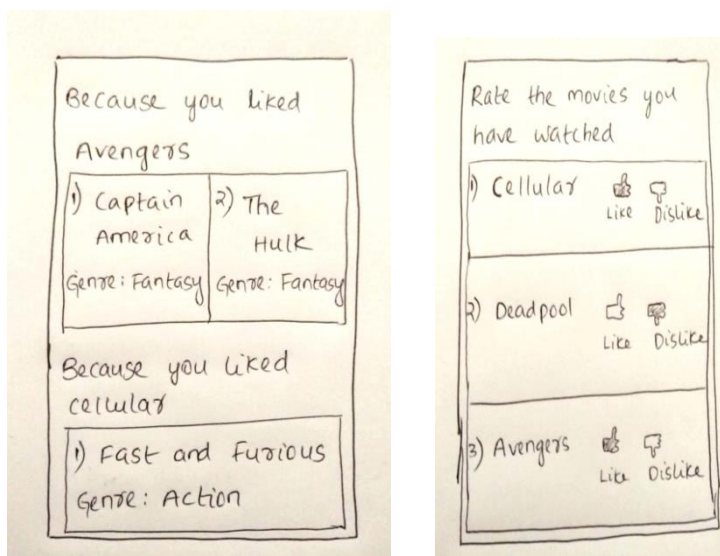 Because you liked
Avengers
1) Captain America
Genre: Fantasy
2) The Hulk
Genre: Fantasy
Because you liked
cellular
1) Fast and Furious
Genre: Action
Rate the movies you
have watched
1) Cellular
Like Dislike
2) Deadpool
Like Dislike
3) Avengers
Like Dislike